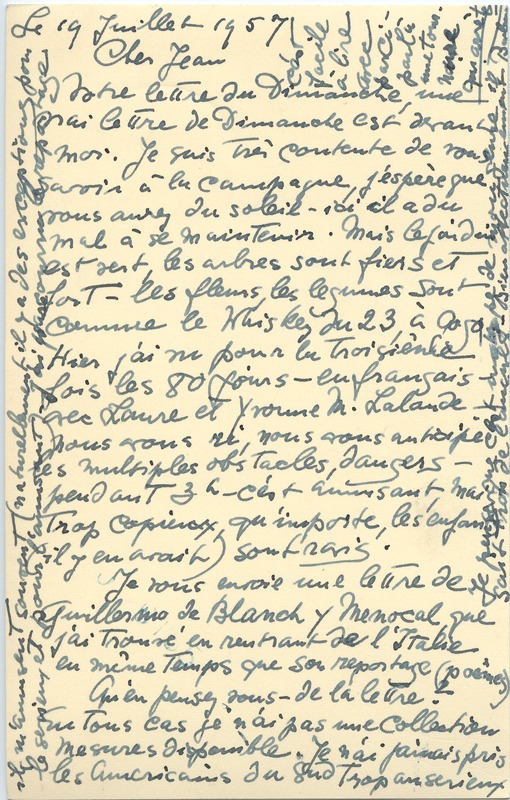 Le 19 Juillet 1957
Cher Jean
(c'est
facile
à lire
avec
Votre lettre du Dimanche, une
vrai lettre de Dimanche est devant
moi. Je suis très contente de vous
savoir à la campagne, j'espère que
vous aurez du soleil - ici il a du
mal à se maintenir. Mais le jardin
est vert, les arbres sont fiers et
fort - les fleurs, les legumes sont
comme le Whiskey du 23, à Gogo
Hier j'ai vu pour la troisième
fois les 80 jours - en français
avec Laure et Yvonne M. Lalande -
nous avons ri, nous avons anticipé
les multiples obstacles, dangers -
pendant 3h - c'est amusant mais
trop copieux, qu'importe, les enfants
il y en avait) sont ravis.
Je vous envoie une lettre de
Guillermo de Blanck y Menocal que
j'ai trouvé en rentrant de l'Italie
en même temps que son reportage (poèmes)
Qu'en pensez vous - de la lettre ?
En tous cas je n'ai pas une collection
Mesures disponible. Je n'ai jamais pris
les Américains du Sud trop au serieux
ils m'amusent souvent (naturellement il y a des exceptions pour
le serieux et pour l'amusant)